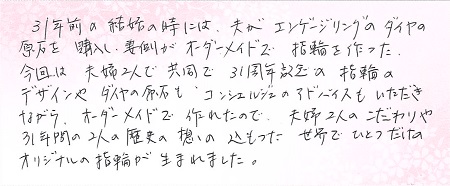 31年前の結婚の時には、夫がエンゲージリングのダイヤの
原石を購入し、妻側がオーダーメイドで指輪を作った。
今回は夫婦2人で共同で31周年記念の指輪の
デザインやダイヤの原石も、コンシェルジュのアドバイスもいただき
ながら、オーダーメイドで作れたので、夫婦2人のこだわりや
31年間の2人の歴史の想いの込もった世界でひとつだけの
オリジナルの指輪が生まれました。